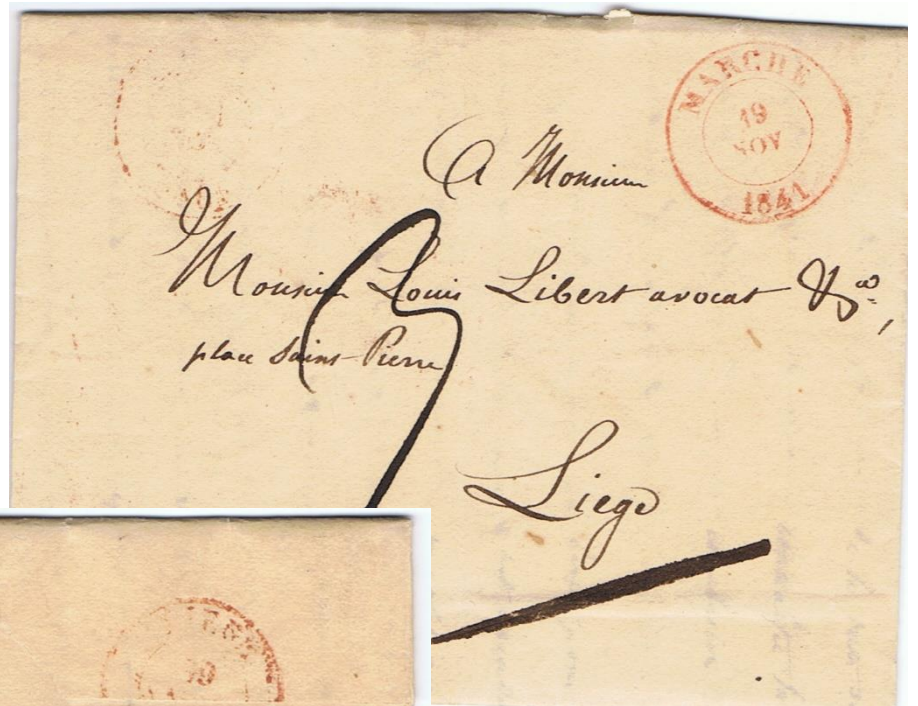 MARCHE
19
NOV
1841
A Monsieur
Monsieur Louis Libert avocat &ca,
place Saint-Pierre
3
Liege
LIEGE